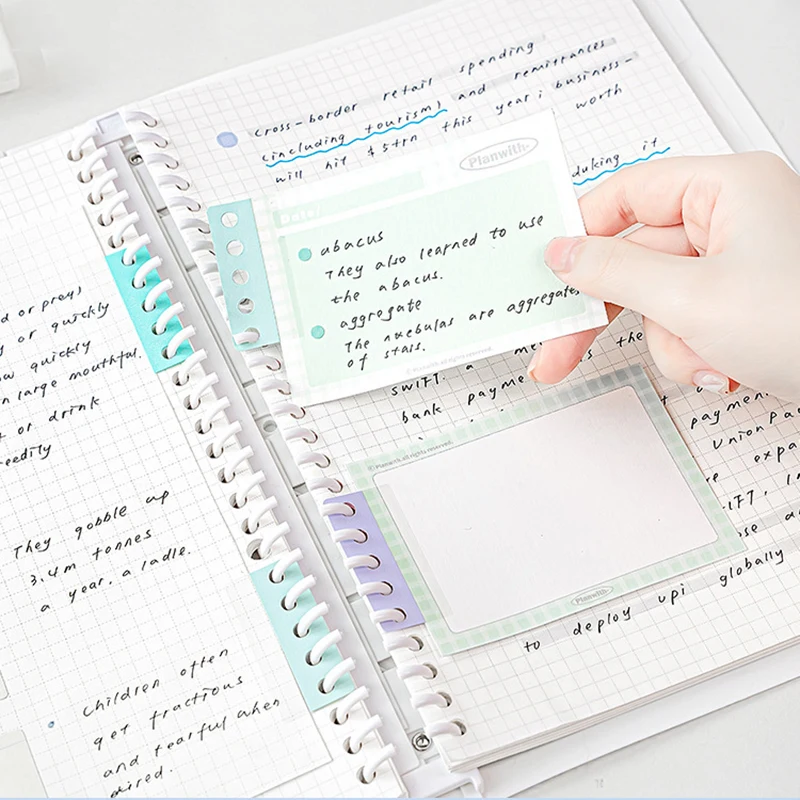 d or prey)
y or quickly
ow quickly
n large mouthful.
t or drink
eedily
They gobble up
3.4m tonnes
a year. a ladle.
Children often
get fractious
and tearful when
cross-border retail spending
(including tourism) and remittances
will hit $5trn this year; business-
worth
duking it
Planwith
abacus
They also learned to use
the abacus.
aggregate
The nxebulas are aggregates
of stars.
© Planwith all rights reserved.
SWIFT. a the
bank payme
paymen
Union Pa
expa
IFT, I
© Planwith all rights reserved.
Planwith
to deploy upi globally